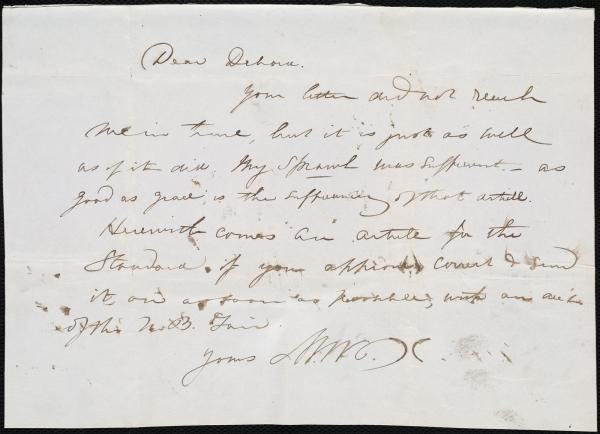 Dear Debora.
Your letter did not reach
me in time, but it is just as well
as if it did. My Sprawl was sufficient - as
good as grace, is the sufficiency of that article.
Herewith comes an article for the
Standard. if you approve, correct & send
it, on as soon as possible, with an
of the N. B. Fair.
Yours